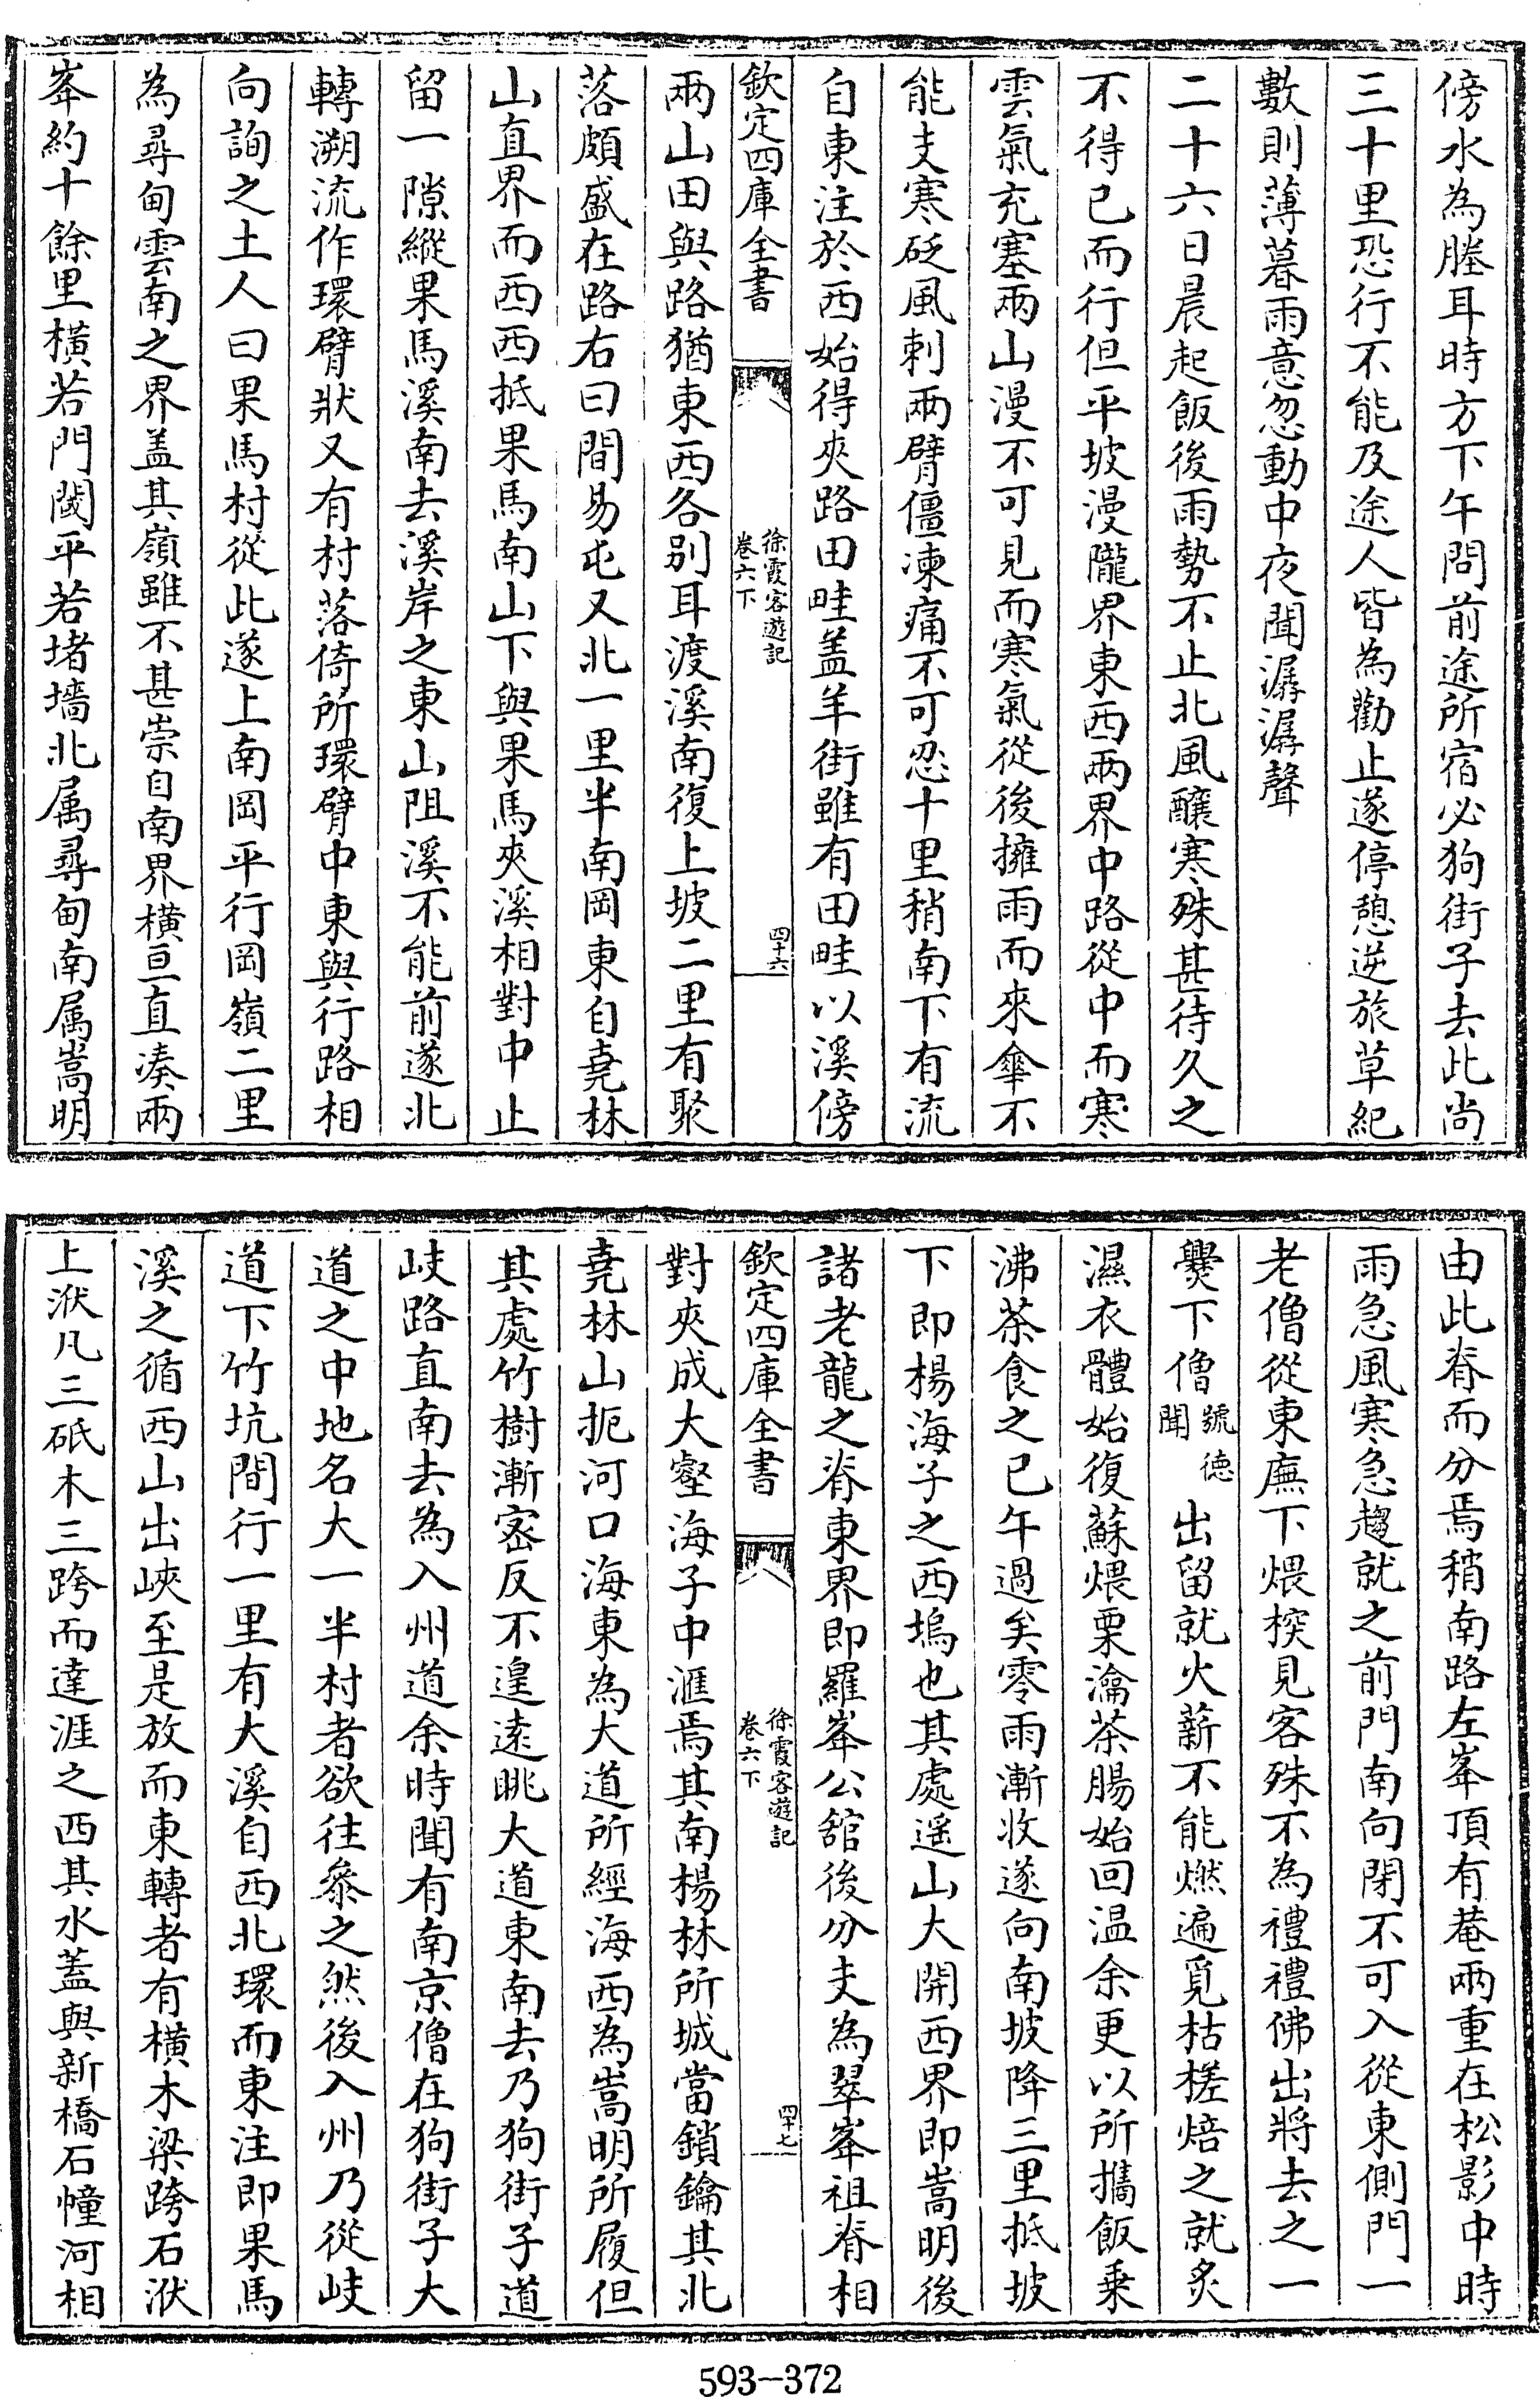 傍水為塍耳時方下午問前途所宿必狗街子去此尚
三十里恐行不能及途人皆為勸止遂停憩逆旅草紀
數則薄暮雨意忽動中夜聞潺潺聲
二十六日晨起飯後雨勢不止北風釀寒殊甚待久之
不得已而行但平坡漫隴界東西兩界中路從中而寒
雲氣充塞兩山漫不可見而寒氣從後擁雨而來傘不
能支寒砭風刺兩臂僵凍痛不可忍十里稍南下有流
自東注於西始得夾路田畦盖羊街雖有田畦以溪傍
欽定四庫全書
徐霞客遊記
卷六下
四十六
兩山田與路猶東西各別耳渡溪南復上坡二里有聚
落頗盛在路右曰間易屯又北一里半南岡東自堯林
山直界而西西抵果馬南山下與果馬夾溪相對中止
留一隙縱果馬溪南去溪岸之東山阻溪不能前遂北
轉溯流作環臂狀又有村落倚所環臂中東與行路相
向詢之土人曰果馬村從此遂上南岡平行岡嶺二里
為尋甸雲南之界盖其嶺雖不甚崇自南界橫亘直湊兩
峯約十餘里橫若門閾平若堵墻北属尋甸南属嵩明
由此脊而分焉稍南路左峯頂有菴兩重在松影中時
雨急風寒急趨就之前門南向閉不可入從東側門一
老僧從東廡下煨榾見客殊不為禮禮佛出將去之一
爨下僧號德聞出留就火薪不能燃遍覓枯槎焙之就炙
濕衣體始復蘇煨栗瀹茶腸始回温余更以所攜飯乗
沸茶食之已午過矣零雨漸收遂向南坡降三里抵坡
下即楊海子之西塢也其處遥山大開西界即嵩明後
諸老龍之脊東界即羅峯公舘後分支為翠峯祖脊相
欽定四庫全書
徐霞客遊記
卷六下
四十七
對夾成大壑海子中滙焉其南楊林所城當鎖鑰其北
堯林山扼河口海東為大道所經海西為嵩明所履但
其處竹樹漸密反不遑逺眺大道東南去乃狗街子道
岐路直南去為入州道余時聞有南京僧在狗街子大
道之中地名大一半村者欲往叅之然後入州乃從岐
道下竹坑間行一里有大溪自西北環而東注即果馬
溪之循西山出峽至是放而東轉者有橫木梁跨石洑
上洑凡三砥木三跨而達涯之西其水蓋與新橋石幢河相
593-372